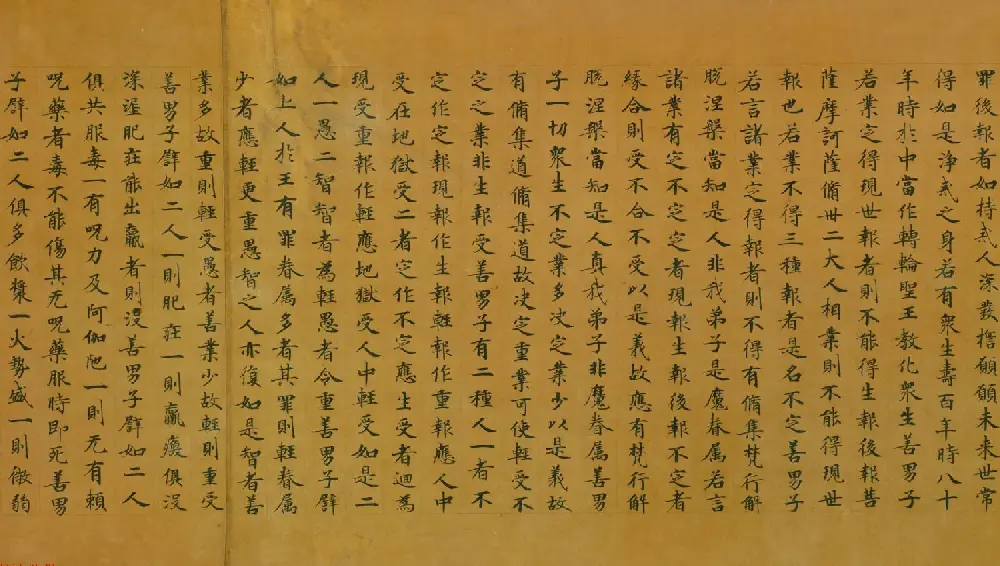 罪後報者如持戒人深發擔願願未來世常
得如是淨戒之身若有衆生壽百年時八十
年時於中當作轉輪聖王教化衆生善男子
若業定得現世報者則不能得生報後報菩
薩摩訶薩脩卅二大人相業則不能得現世
報也若業不得三種報者是名不定善男子
若言諸業定得報者則不得有脩集梵行解
脫涅槃當知是人非我弟子是魔眷属若言
諸業有定不定定者現報生報後報不定者
緣合則受不合不受以是義故應有梵行解
脫涅槃當知是人真我弟子非魔眷属善男
子一切衆生不定業多决定業少以是義故
有脩集道脩集道故决定重業可使輕受不
定之業非生報受善男子有二種人一者不
定作定報現報作生報輕報作重報應人中
受在地獄受二者定作不定應生受者迴為
現受重報作輕應地獄受人中輕受如是二
人一愚二智智者為輕愚者令重善男子譬
如上人於王有罪眷属多者其罪則輕眷属
少者應輕更重愚智之人亦復如是智者善
業多故重則輕受愚者善業少故輕則重受
善男子譬如二人一則肥壯一則羸瘦俱沒
深渥肥壯能出羸者則沒善男子譬如二人
俱共服毒一有呪力及阿伽陀一則无有頼
呪藥者毒不能傷其无呪藥服時即死善男
子譬如二人俱多飲漿一火勢盛一則微弱